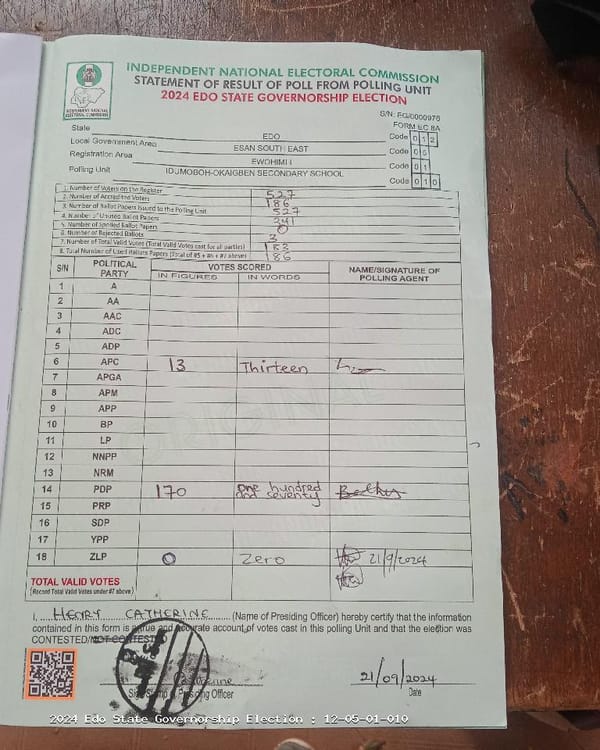 INDEPENDENT NATIONAL ELECTORAL COMMISSION
STATEMENT OF RESULT OF POLL FROM POLLING UNIT
2024 EDO STATE GOVERNORSHIP ELECTION
S/N: EG/0000976
FORM EC 8A
INDEPENDENT NATIONAL ELECTORAL COMMISSION
State EDO Code 0 1 2
Local Government Area ESAN SOUTH EAST Code 0 5
Registration Area EWOHIMI I Code 0 1
Polling Unit IDUMOBOH-OKAIGBEN SECONDARY SCHOOL Code 0 1 0
1. Number of Voters on the Register 527
2. Number of Accredited Voters 186
3. Number of Ballot Papers Issued to the Polling Unit 527
4. Number of Unused Ballot Papers 341
5. Number of Spoiled Ballot Papers 0
6. Number of Rejected Ballots 3
7. Number of Total Valid Votes (Total Valid Votes cast for all parties) 183
8. Total Number of Used Ballot Papers (Total of #5 + #6 + #7 above) 186
S/N POLITICAL PARTY VOTES SCORED NAME/SIGNATURE OF POLLING AGENT
IN FIGURES IN WORDS
1 A
2 AA
3 AAC
4 ADC
5 ADP
6 APC 13 Thirteen
7 APGA
8 APM
9 APP
10 BP
11 LP
12 NNPP
13 NRM
14 PDP 170 one hundred and seventy
15 PRP
16 SDP
17 YPP
18 ZLP 0 Zero 21/9/2024
TOTAL VALID VOTES
(Record Total Valid Votes under #7 above)
I, HENRY CATHERINE (Name of Presiding Officer) hereby certify that the information
contained in this form is a true and accurate account of votes cast in this polling Unit and that the election was
CONTESTED/NOT CONTESTED
21/09/2024
Officer Date
2024 Edo State Governorship Election : 12-05-01-010